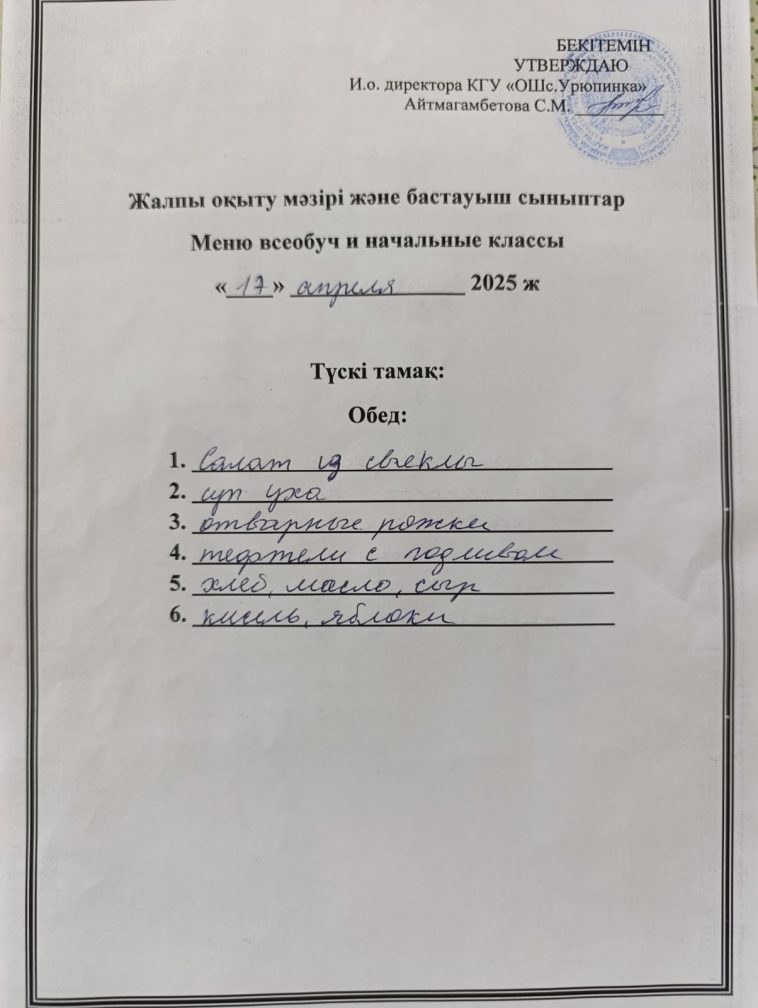 БЕКІТЕМІН
УТВЕРЖДАЮ
И.о. директора КГУ «ОШс.Урюпинка»
Айтмагамбетова С.М.
Жалпы оқыту мәзірі және бастауыш сыныптар
Меню всеобуч и начальные классы
«17» апреля 2025 ж
Түскі тамақ:
Обед:
1. Салат из свеклы
2. суп уха
3. отварные рожки
4. тефтели с подливом
5. хлеб, масло, сыр
6. кисель, яблоки